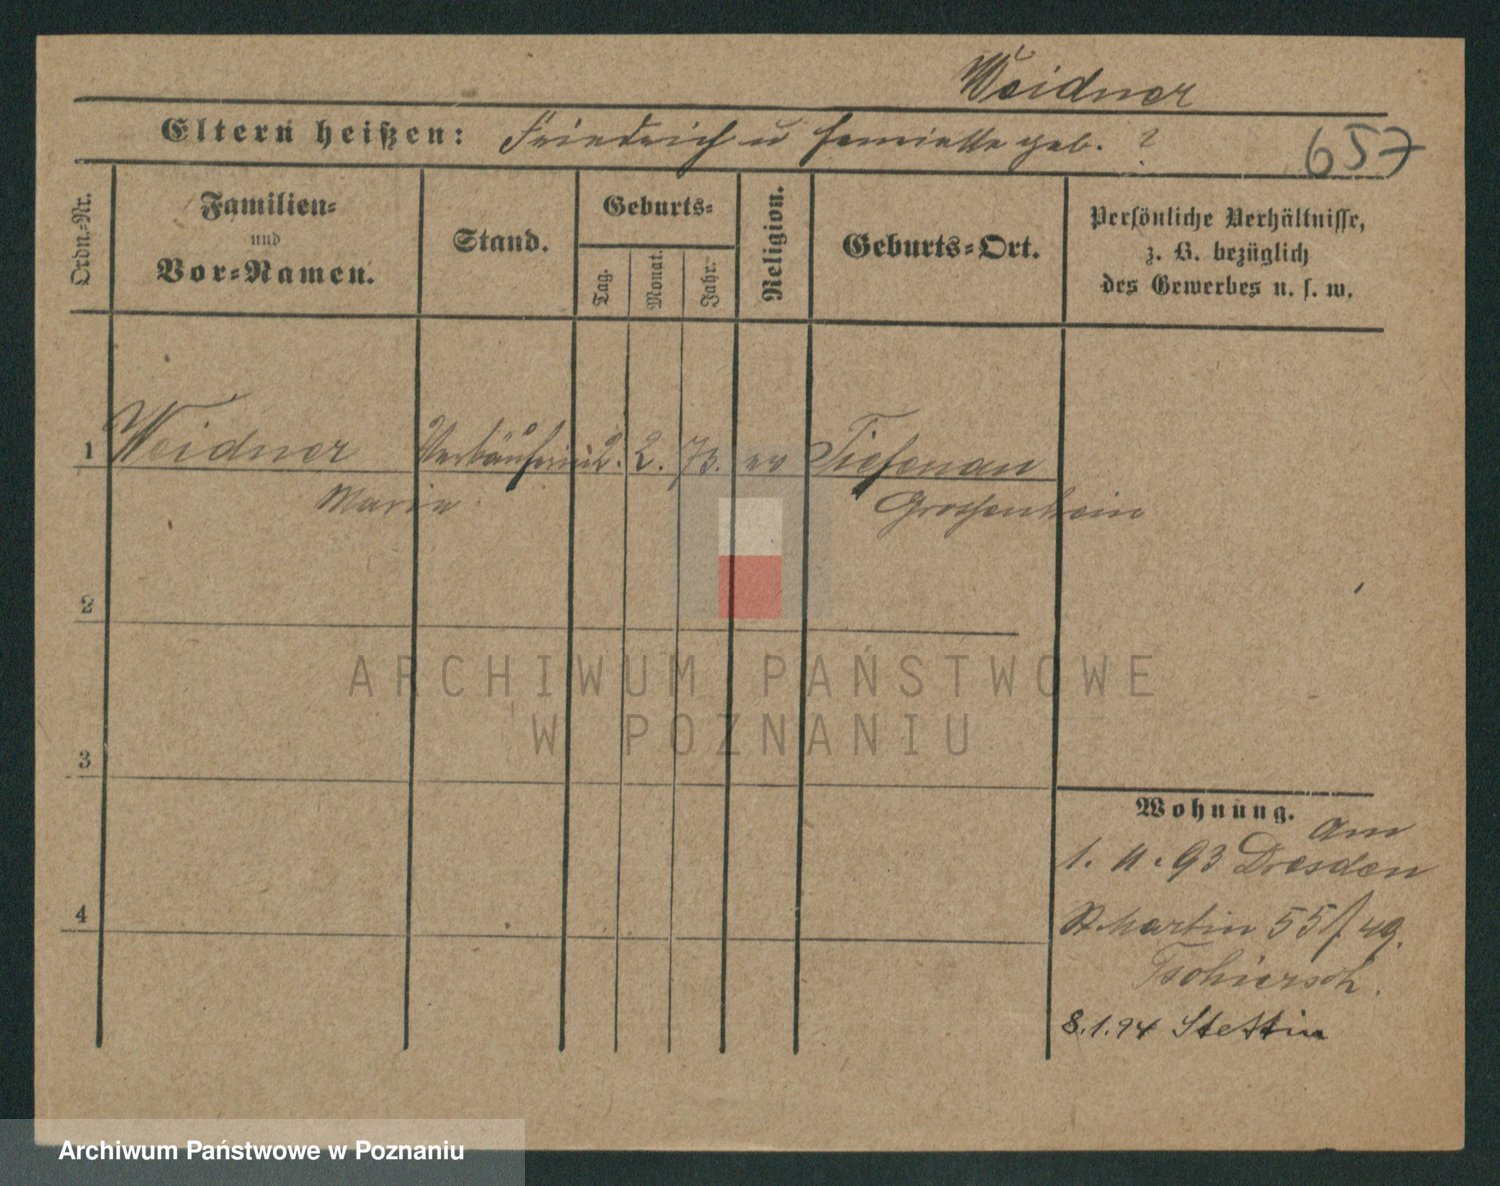 Weidner
Eltern heißen: Friedrich u Henriette geb. ?
657
Ordn.-Nr.
Familien-
und
Vor-Namen.
Stand.
Geburts-
Tag.
Monat.
Jahr.
Religion.
Geburts-Ort.
Persönliche Verhältnisse,
z. B. bezüglich
des Gewerbes u. s. w.
1 Weidner Verkäuferin 2. 2. 73. ev Tiefenau
Marie Grossenhain
2
3
4
Wohnung.
am
1. 11. 93 Dresden
St. Martin 55/49.
Tschiersch.
8.1.94 Stettin
ARCHIWUM PAŃSTWOWE
W POZNANIU
Archiwum Państwowe w Poznaniu